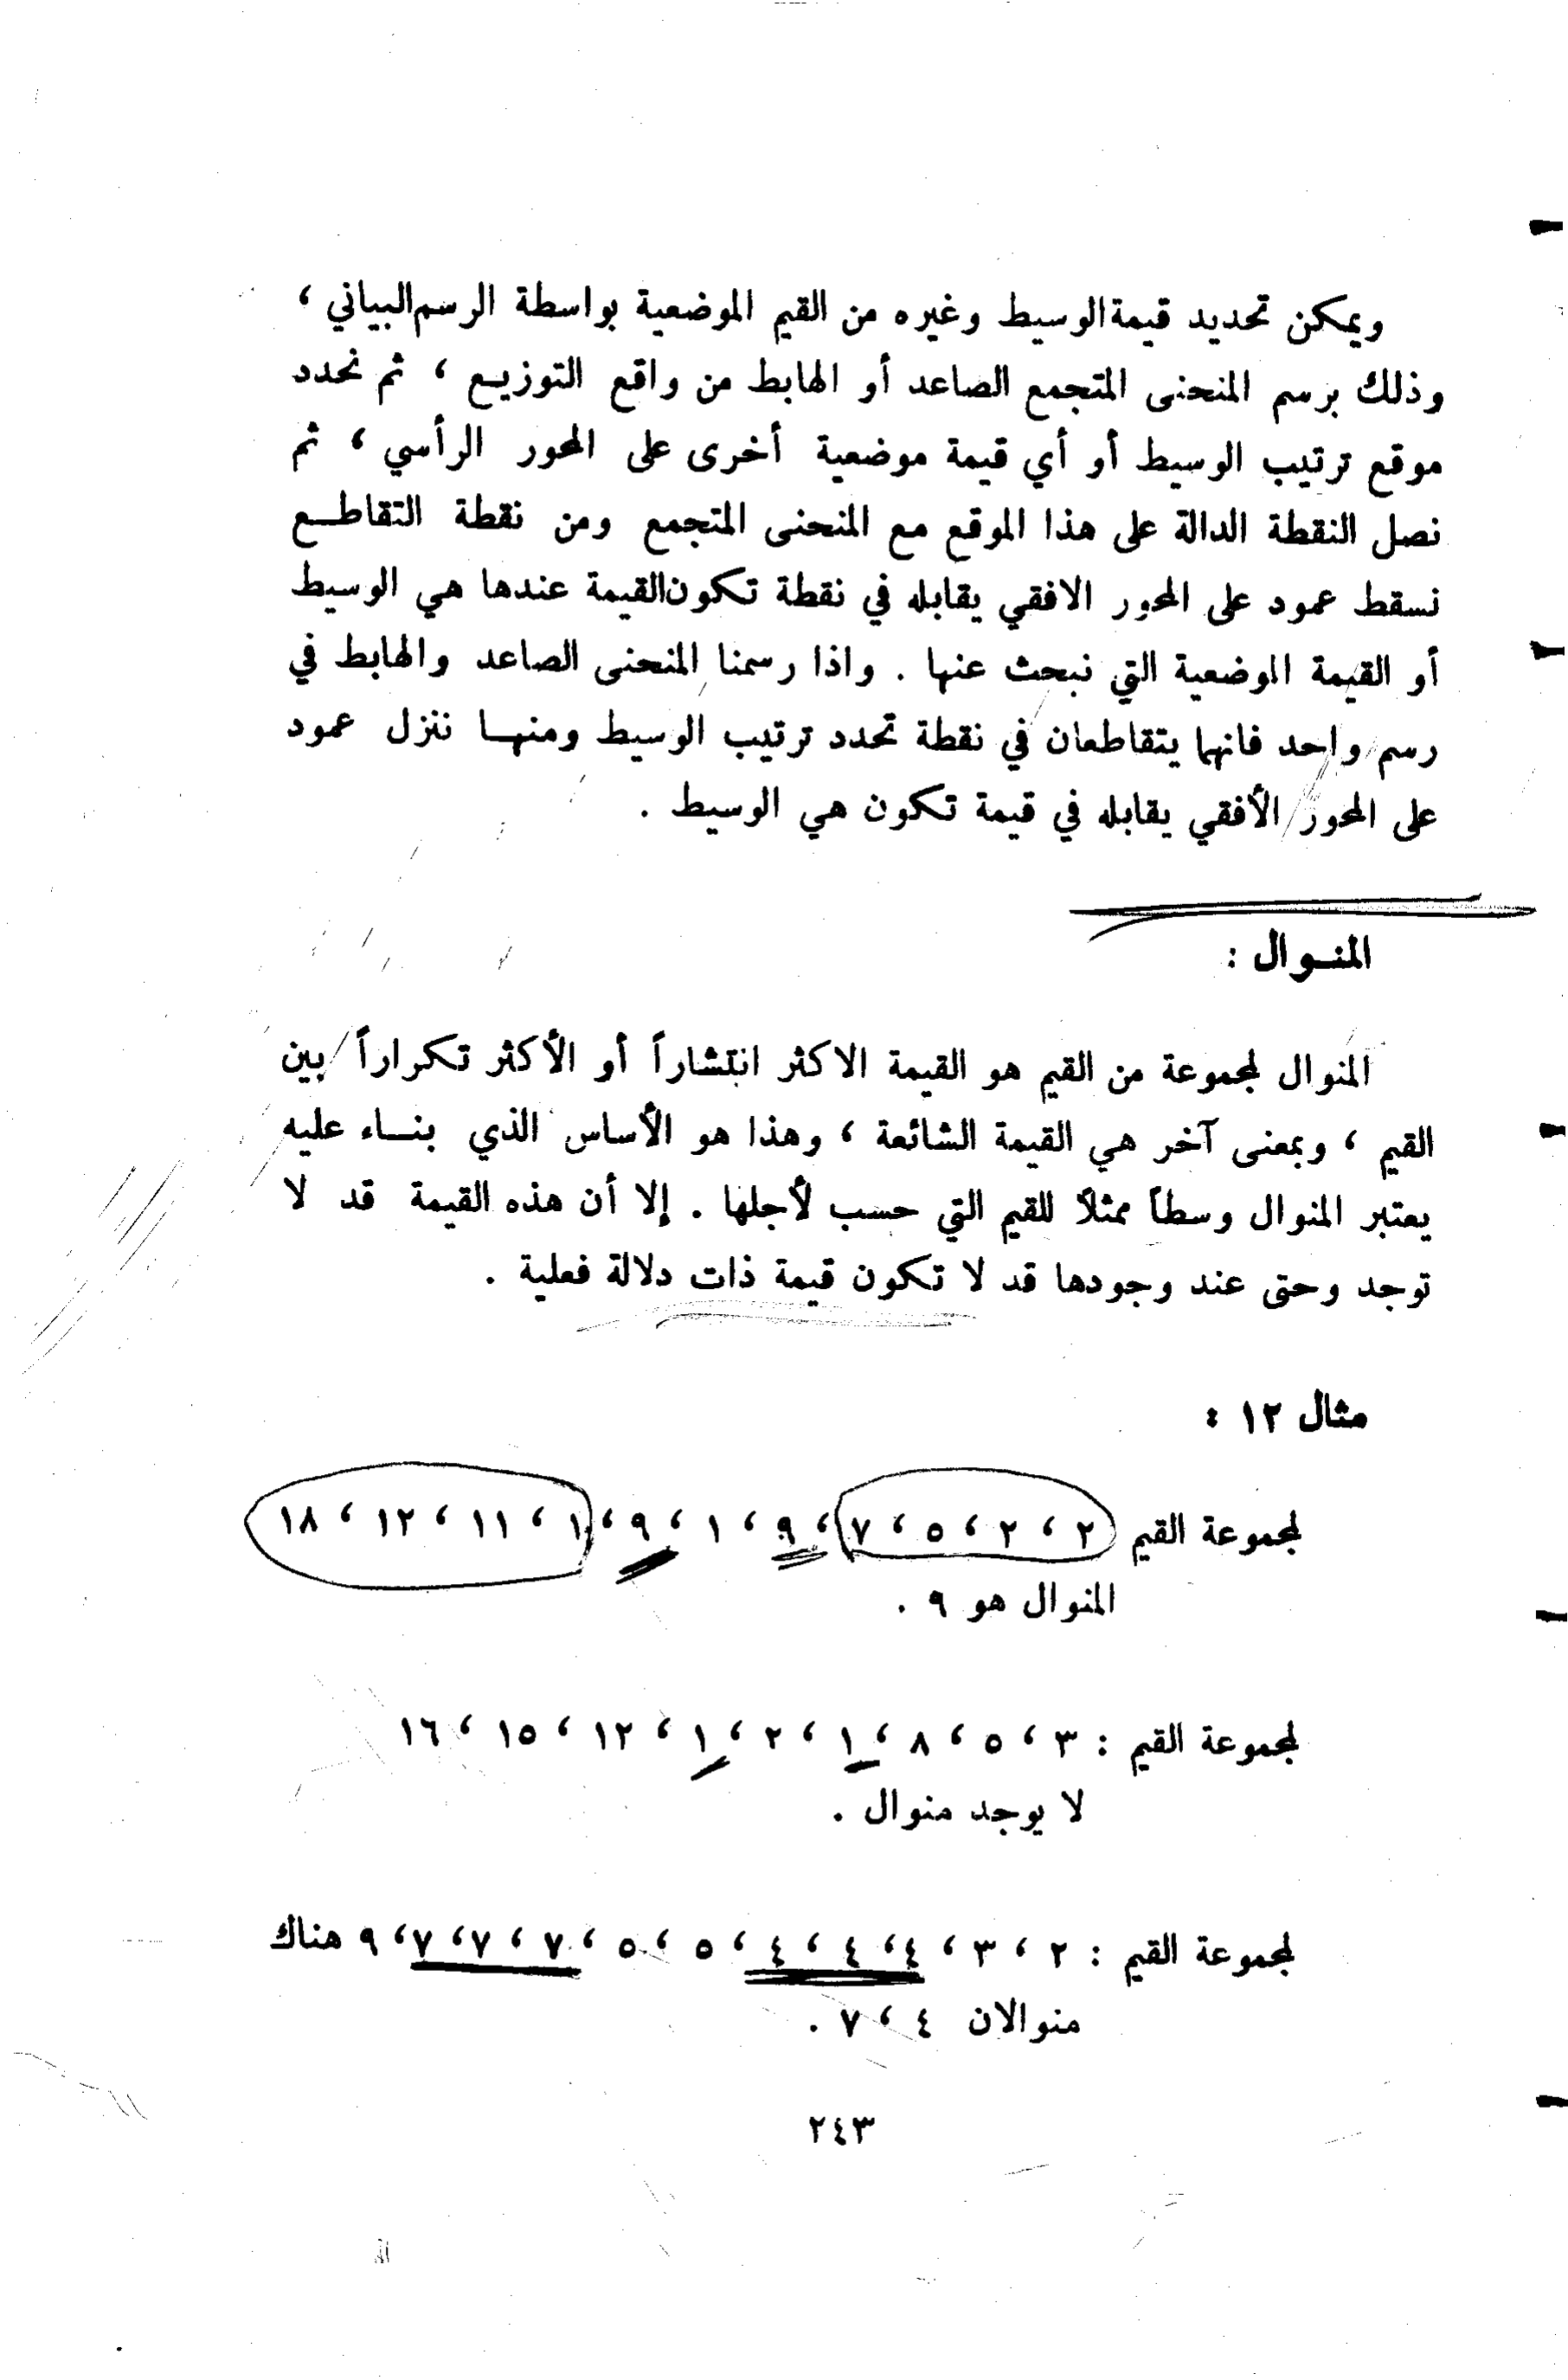 ويمكن تحديد قيمة الوسيط وغيره من القيم الموضعية بواسطة الرسم البياني ،
وذلك برسم المنحنى المتجمع الصاعد أو الهابط من واقع التوزيع ، ثم نحدد
موقع ترتيب الوسيط أو أي قيمة موضعية أخرى على المحور الرأسي ، ثم
نصل النقطة الدالة على هذا الموقع مع المنحنى المتجمع ومن نقطة التقاطع
نسقط عمود على المحور الافقي يقابله في نقطة تكون القيمة عندها هي الوسيط
أو القيمة الموضعية التي نبحث عنها . واذا رسمنا المنحنى الصاعد والهابط في
رسم واحد فانهما يتقاطعان في نقطة تحدد ترتيب الوسيط ومنها ننزل عمود
على المحور الأفقي يقابله في قيمة تكون هي الوسيط .
المنوال :
المنوال لمجموعة من القيم هو القيمة الاكثر انتشاراً أو الأكثر تكراراً بين
القيم ، وبمعنى آخر هي القيمة الشائعة ، وهذا هو الأساس الذي بناء عليه
يعتبر المنوال وسطاً ممثلاً للقيم التي حسب لأجلها . إلا أن هذه القيمة قد لا
توجد وحتى عند وجودها قد لا تكون قيمة ذات دلالة فعلية .
مثال ١٢ :
لمجموعة القيم ٢ ، ٢ ، ٥ ، ٧ ، ٩ ، ١ ، ٩ ، ١ ، ١١ ، ١٢ ، ١٨
المنوال هو ٩ .
لمجموعة القيم : ٣ ، ٥ ، ٨ ، ١ ، ٢ ، ١ ، ١٢ ، ١٥ ، ١٦
لا يوجد منوال .
لمجموعة القيم : ٢ ، ٣ ، ٤ ، ٤ ، ٤ ، ٥ ، ٥ ، ٧ ، ٧ ، ٧ ، ٩ هناك
منوالان ٤ ، ٧ .
٢٤٣